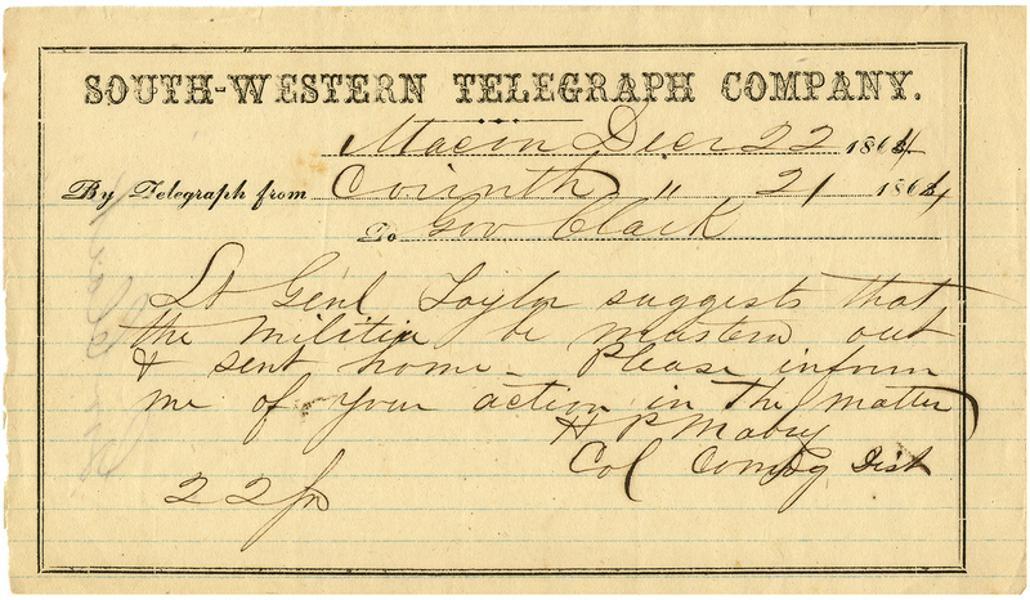 SOUTH-WESTERN TELEGRAPH COMPANY.
Macon Decr 22 1864
By Telegraph from Corinth " 21 1864
To Gov Clark
Lt Genl Taylor suggests that
the militia be musterd out
& sent home - Please inform
me of your action in the matter
H P Mabry
Col Comdg Dist
22